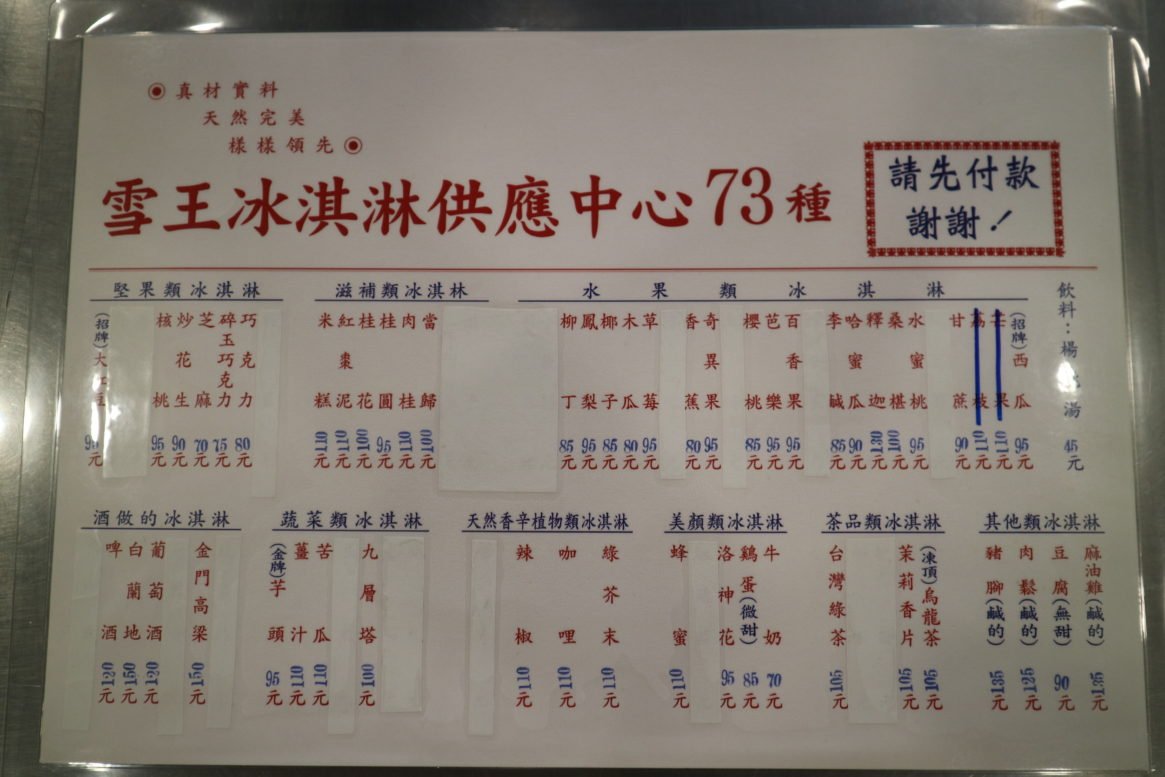 ◉真材實料
天然完美
樣樣領先◉
雪王冰淇淋供應中心73種
請先付款
謝謝！
飲料：楊桃湯 45元
水果類冰淇淋
(招牌)西瓜 95元
芒果 110元
荔枝 110元
甘蔗 90元
水蜜桃 95元
桑椹 100元
釋迦 130元
哈蜜瓜 90元
李鹹 85元
百香果 95元
芭樂 95元
櫻桃 85元
奇異果 95元
香蕉 80元
草莓 95元
木瓜 80元
椰子 85元
鳳梨 95元
柳丁 85元
滋補類冰淇林
當歸 100元
肉桂 110元
桂圓 95元
桂花 100元
紅棗泥 110元
米糕 110元
堅果類冰淇淋
巧克力 80元
碎玉巧克力 75元
芝麻 70元
炒花生 90元
核桃 95元
(招牌)大紅豆 95元
其他類冰淇淋
麻油雞(鹹的) 135元
豆腐(無甜) 90元
肉鬆(鹹的) 125元
豬腳(鹹的) 135元
茶品類冰淇淋
(凍頂)烏龍茶 105元
茉莉香片 105元
台灣綠茶 105元
美顏類冰淇淋
牛奶 70元
鷄蛋(微甜) 85元
洛神花 95元
蜂蜜 110元
天然香辛植物類冰淇淋
綠芥末 110元
咖哩 110元
辣椒 110元
蔬菜類冰淇淋
九層塔 100元
苦瓜 110元
薑汁 110元
(金牌)芋頭 95元
酒做的冰淇淋
金門高粱 150元
葡萄酒 120元
白蘭地 150元
啤酒 120元